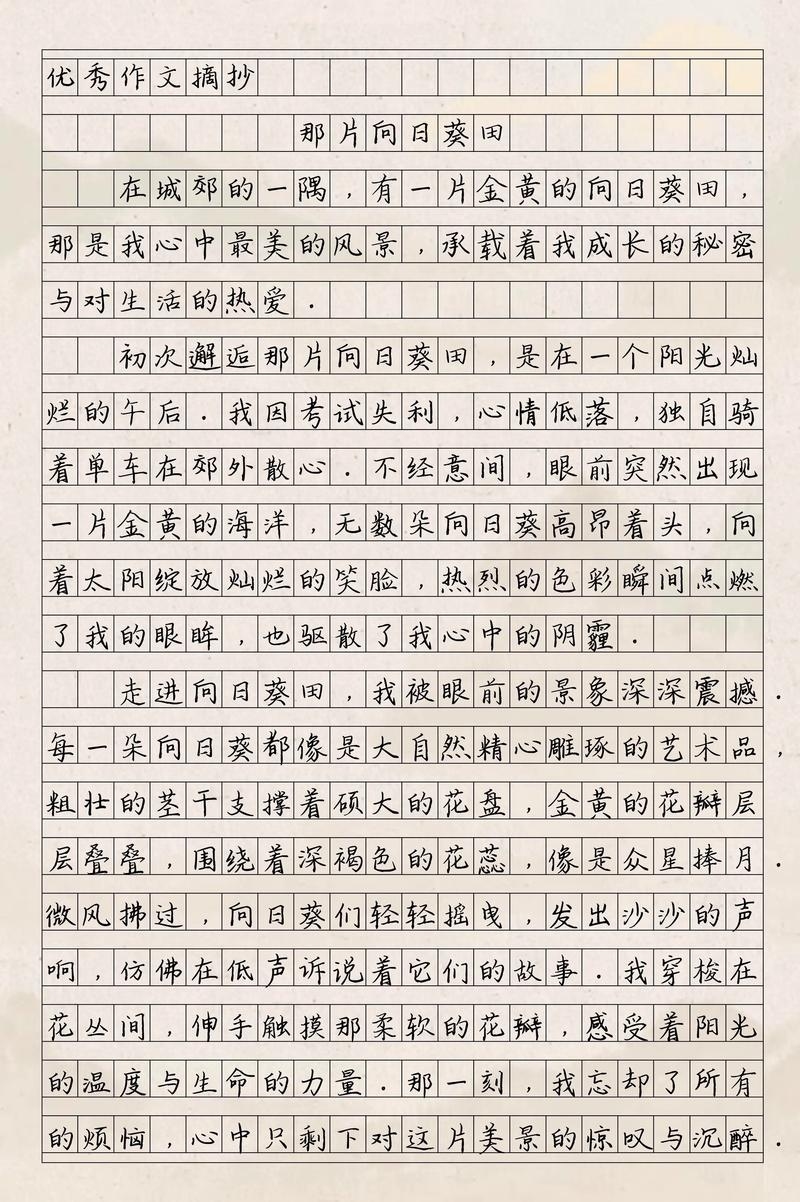 优秀作文摘抄
那片向日葵田
在城郊的一隅，有一片金黄的向日葵田，
那是我心中最美的风景，承载着我成长的秘密
与对生活的热爱．
初次邂逅那片向日葵田，是在一个阳光灿
烂的午后．我因考试失利，心情低落，独自骑
着单车在郊外散心．不经意间，眼前突然出现
一片金黄的海洋，无数朵向日葵高昂着头，向
着太阳绽放灿烂的笑脸，热烈的色彩瞬间点燃
了我的眼眸，也驱散了我心中的阴霾．
走进向日葵田，我被眼前的景象深深震撼．
每一朵向日葵都像是大自然精心雕琢的艺术品，
粗壮的茎干支撑着硕大的花盘，金黄的花瓣层
层叠叠，围绕着深褐色的花蕊，像是众星捧月．
微风拂过，向日葵们轻轻摇曳，发出沙沙的声
响，仿佛在低声诉说着它们的故事．我穿梭在
花丛间，伸手触摸那柔软的花瓣，感受着阳光
的温度与生命的力量．那一刻，我忘却了所有
的烦恼，心中只剩下对这片美景的惊叹与沉醉．